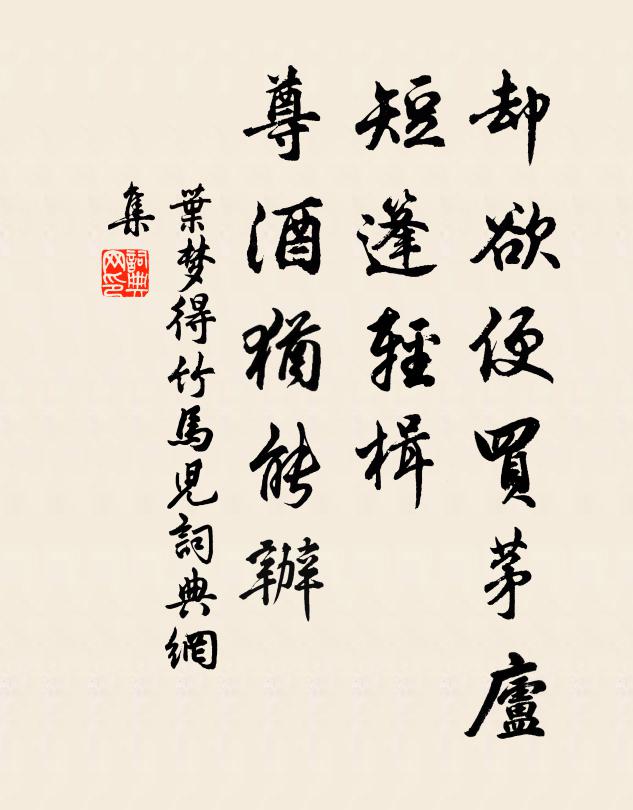 却欲便買茅廬
短篷輕楫
尊酒猶能辦
葉梦得竹馬児詞典網
集
詞典网印